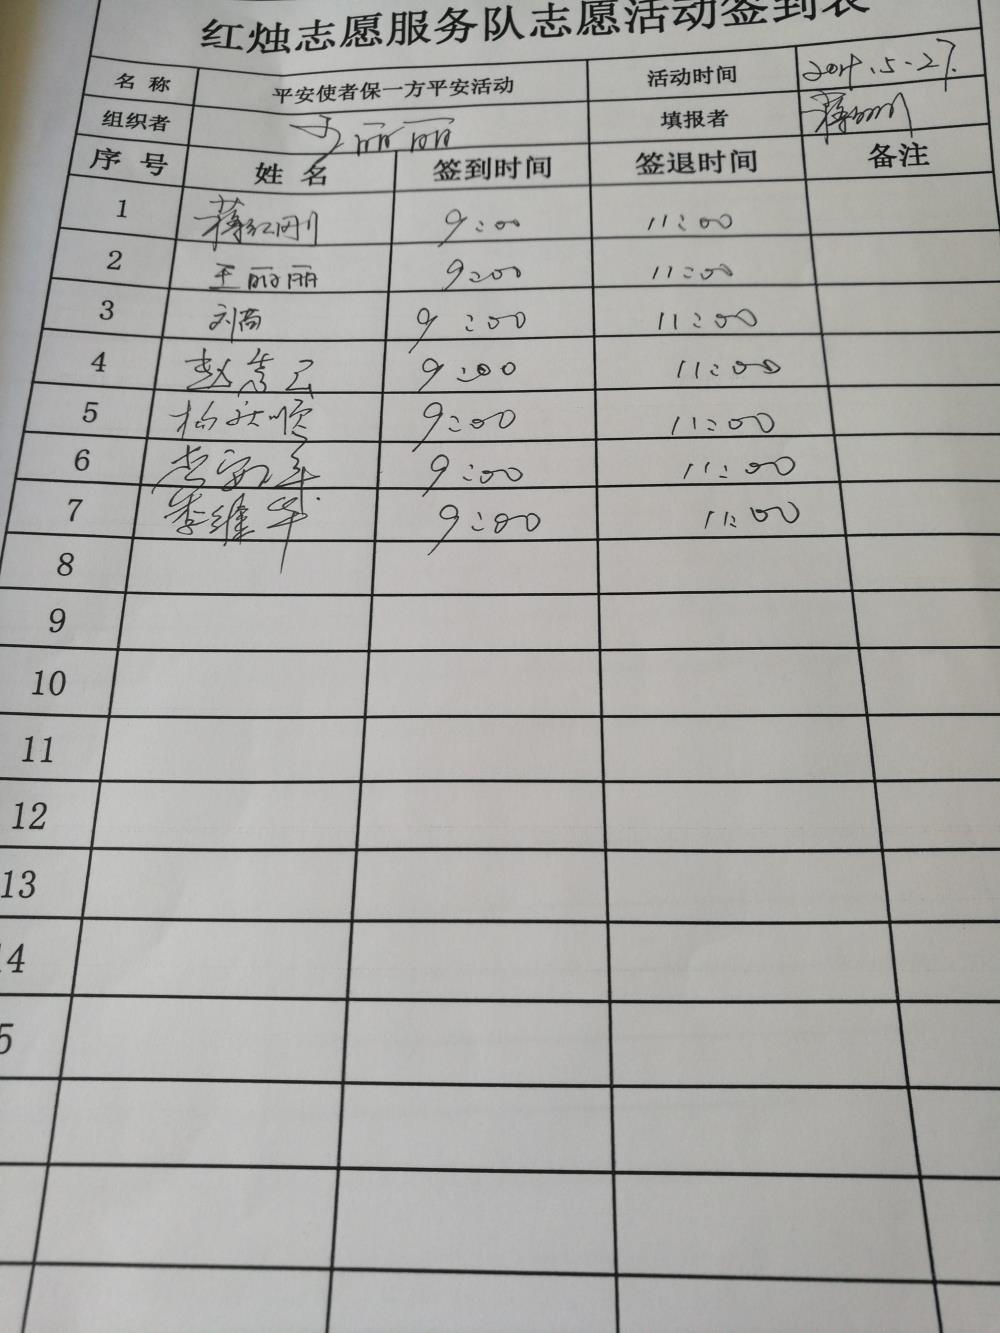 红烛志愿服务队志愿活动签到表
名 称 平安使者保一方平安活动 活动时间 2019.5.27.
组织者 王丽丽 填报者 蒋红刚
序 号 姓 名 签到时间 签退时间 备注
1 蒋红刚 9:00 11:00
2 王丽丽 9:00 11:00
3 刘尚 9:00 11:00
4 赵 9:00 11:00
5 杨 顺 9:00 11:00
6 9:00 11:00
7 李继华 9:00 11:00
8
9
10
11
12
13
14
5